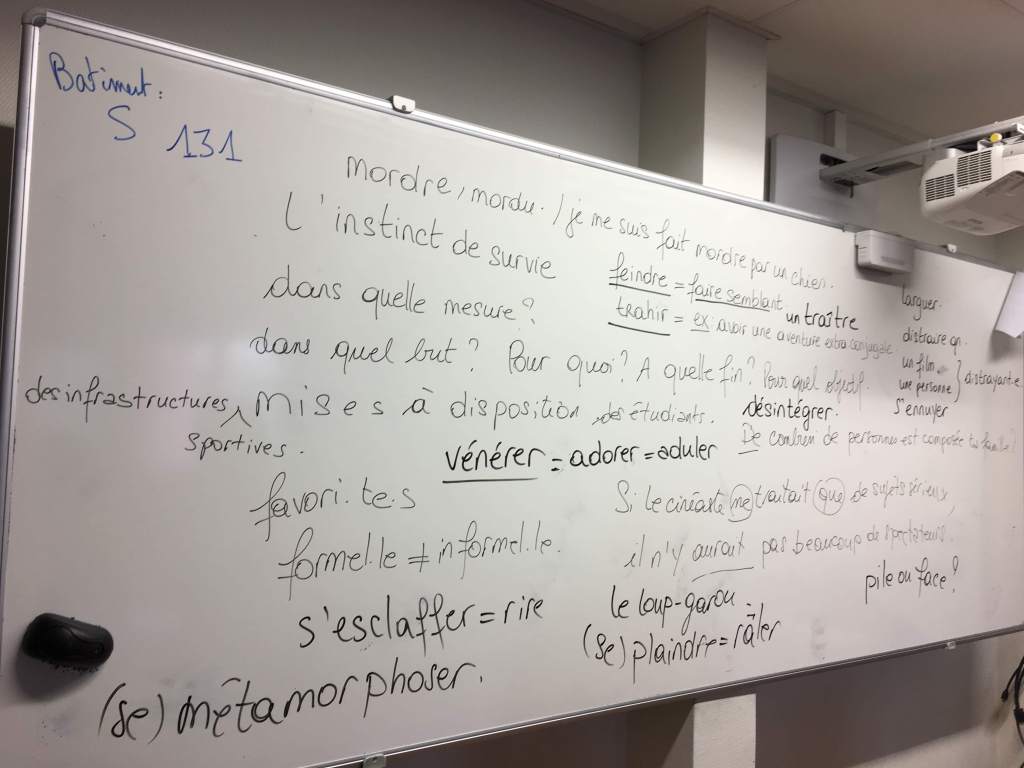 Batiment:
S 131
mordre, mordu. / je me suis fait mordre par un chien.
L'instinct de survie
feindre = faire semblant
un traître
trahir = ex: avoir une aventure extra conjugale
larguer.
distraire qn.
un film
une personne } distrayant·e
s'ennuyer
dans quelle mesure?
dans quel but? Pour quoi? A quelle fin? Pour quel objectif.
des infrastructures sportives. mises à disposition des étudiants.
désintégrer.
De combien de personnes est composée ta famille?
vénérer = adorer = aduler
favori.te.s
Si le cinéaste ne traitait que de sujets sérieux,
il n'y aurait pas beaucoup de spectateurs.
formel.le ≠ informel.le.
pile ou face?
s'esclaffer = rire
le loup-garou.
(se) plaindre = râler
(se) métamorphoser.